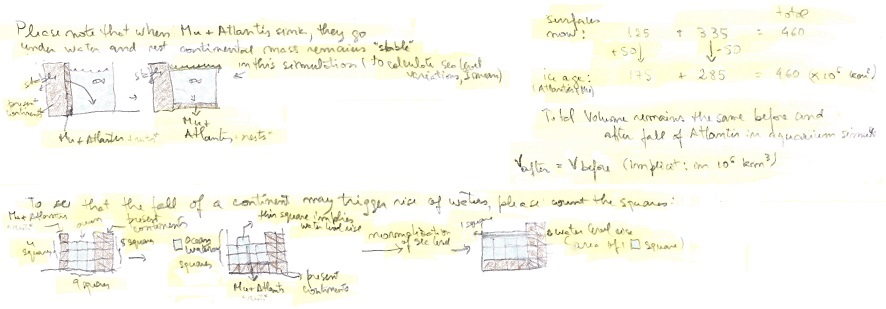 Please note that when Mu + Atlantis sink, they go
under water and rest continental mass remains "stable"
in this simulation (to calculate sea level
variations, I mean)
stable
present continent
Mu + Atlantis
stable
Mu +
Atlantis "rests"
surfaces
now: 125 + 335 = 460
total
+50 ↓ ↓ -50
ice age: 175 + 285 = 460 (x 10⁶ km²)
(Atlantis, Mu)
Total Volume remains the same before and
after fall of Atlantis in aquarium
V after = V before (implicit: in 10⁶ km³)
To see that the fall of a continent may trigger rise of waters, please count the squares:
Mu + Atlantis
ocean
present
continents
4
squares
5 square
9 squares
ocean
squares
this square implies
water level rise
Mu + Atlantis
present
continents
normalization
of sea level
1 square
water level rise
(area of: □ square)